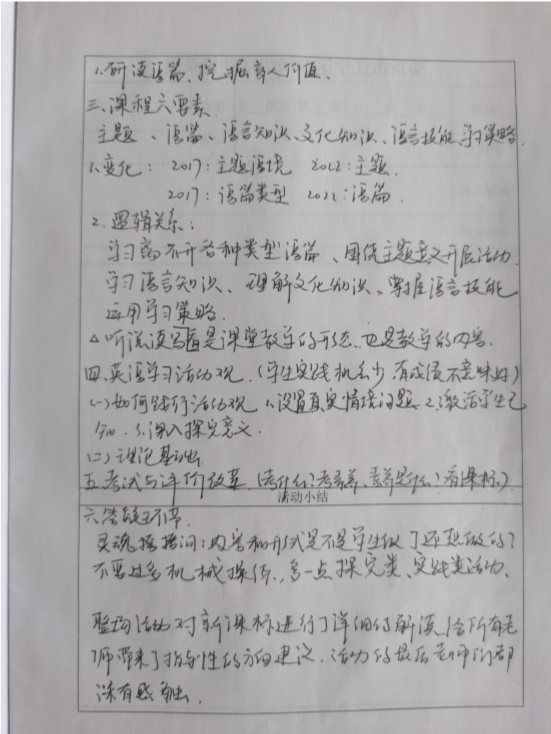 1.研读语篇、挖掘育人价值.
三.课程六要素.
主题、语篇、语言知识、文化知识、语言技能、学习策略.
1.变化: 2017:主题语境 2022:主题.
2017:语篇类型 2022:语篇.
2.逻辑关系:
学习离不开各种类型语篇、围绕主题意义开展活动.
学习语言知识、理解文化知识、掌握语言技能
运用学习策略.
△听说读写看是课堂教学的形态、也是教学的内容.
四.英语学习活动观.(学生实践机会少,有成绩不意味好)
(一)如何践行活动观 1.设置真实情境问题 2.激活学生已
知. 3.深入探究意义.
(二)理论基础
五.考试与评价改革.(考什么?考素养、素养是什么?看课标.)
活动小结
六.答疑环节.
灵魂拷问:内容和形式是不是学生做了还想做的?
不要过多机械操练,多一点探究类、实践类活动、
整场活动对新课标进行了详细的解读,给所有老
师带来了指导性的方向建议.活动的最后老师们都
深有感触